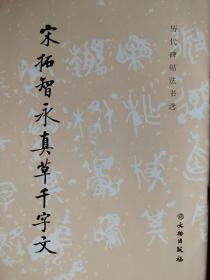 历代碑帖法书选
宋拓智永真草千字文
文物出版社